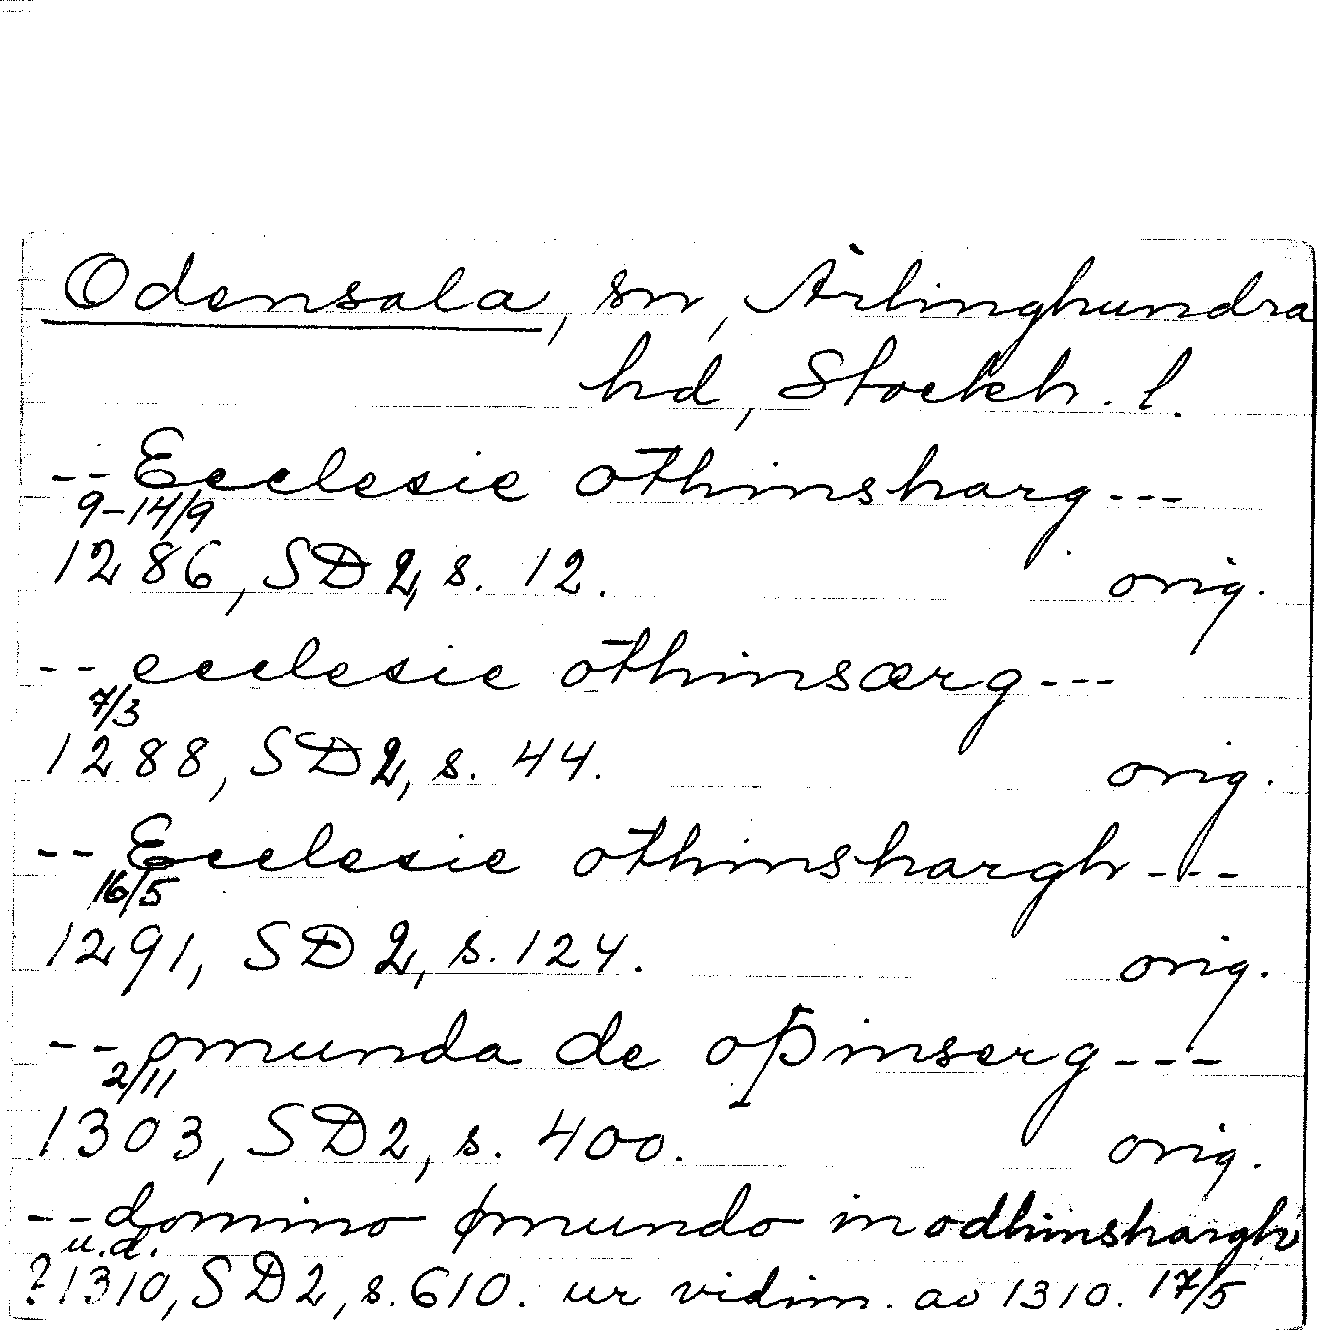 Odensala, sn, Ärlinghundra
hd, Stockh. l.
-- Ecclesie othinsharg ---
9-14/9
1286, SD 2, s. 12. orig.
-- ecclesie othinsærg ---
7/3
1288, SD 2, s. 44. orig.
-- Ecclesie othinshargh ---
16/5
1291, SD 2, s. 124. orig.
-- omunda de oþinserg ---
2/11
1303, SD 2, s. 400. orig.
-- domino ømundo in odhinshargh
u.d.
? 1310, SD 2, s. 610. ur vidim. av 1310. 17/5